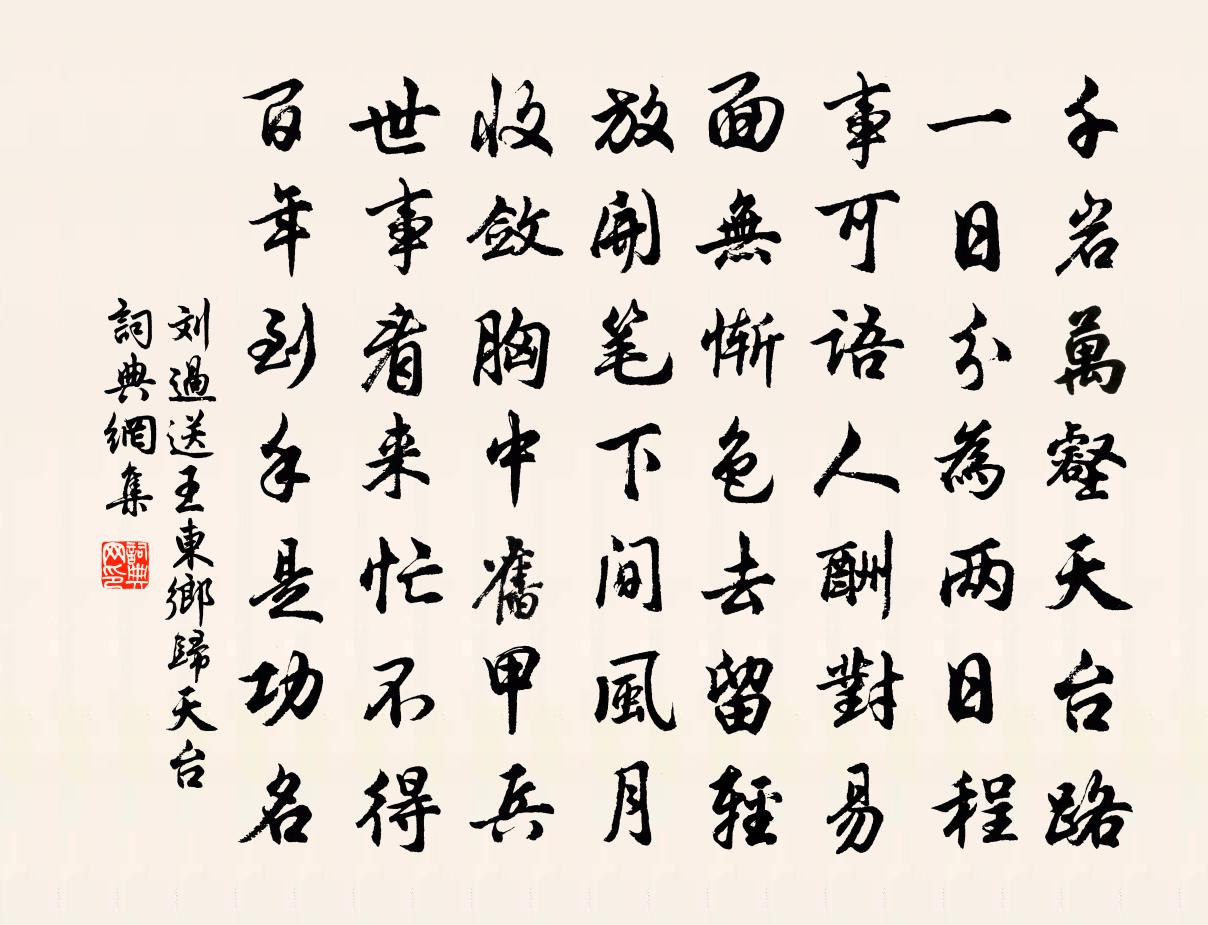 千岩萬壑天台路
一日分為两日程
事可語人酬對易
面無慚色去留輕
放開笔下間風月
收斂胸中舊甲兵
世事看来忙不得
百年到手是功名
刘過送王東鄉歸天台
詞典網集
詞典网印